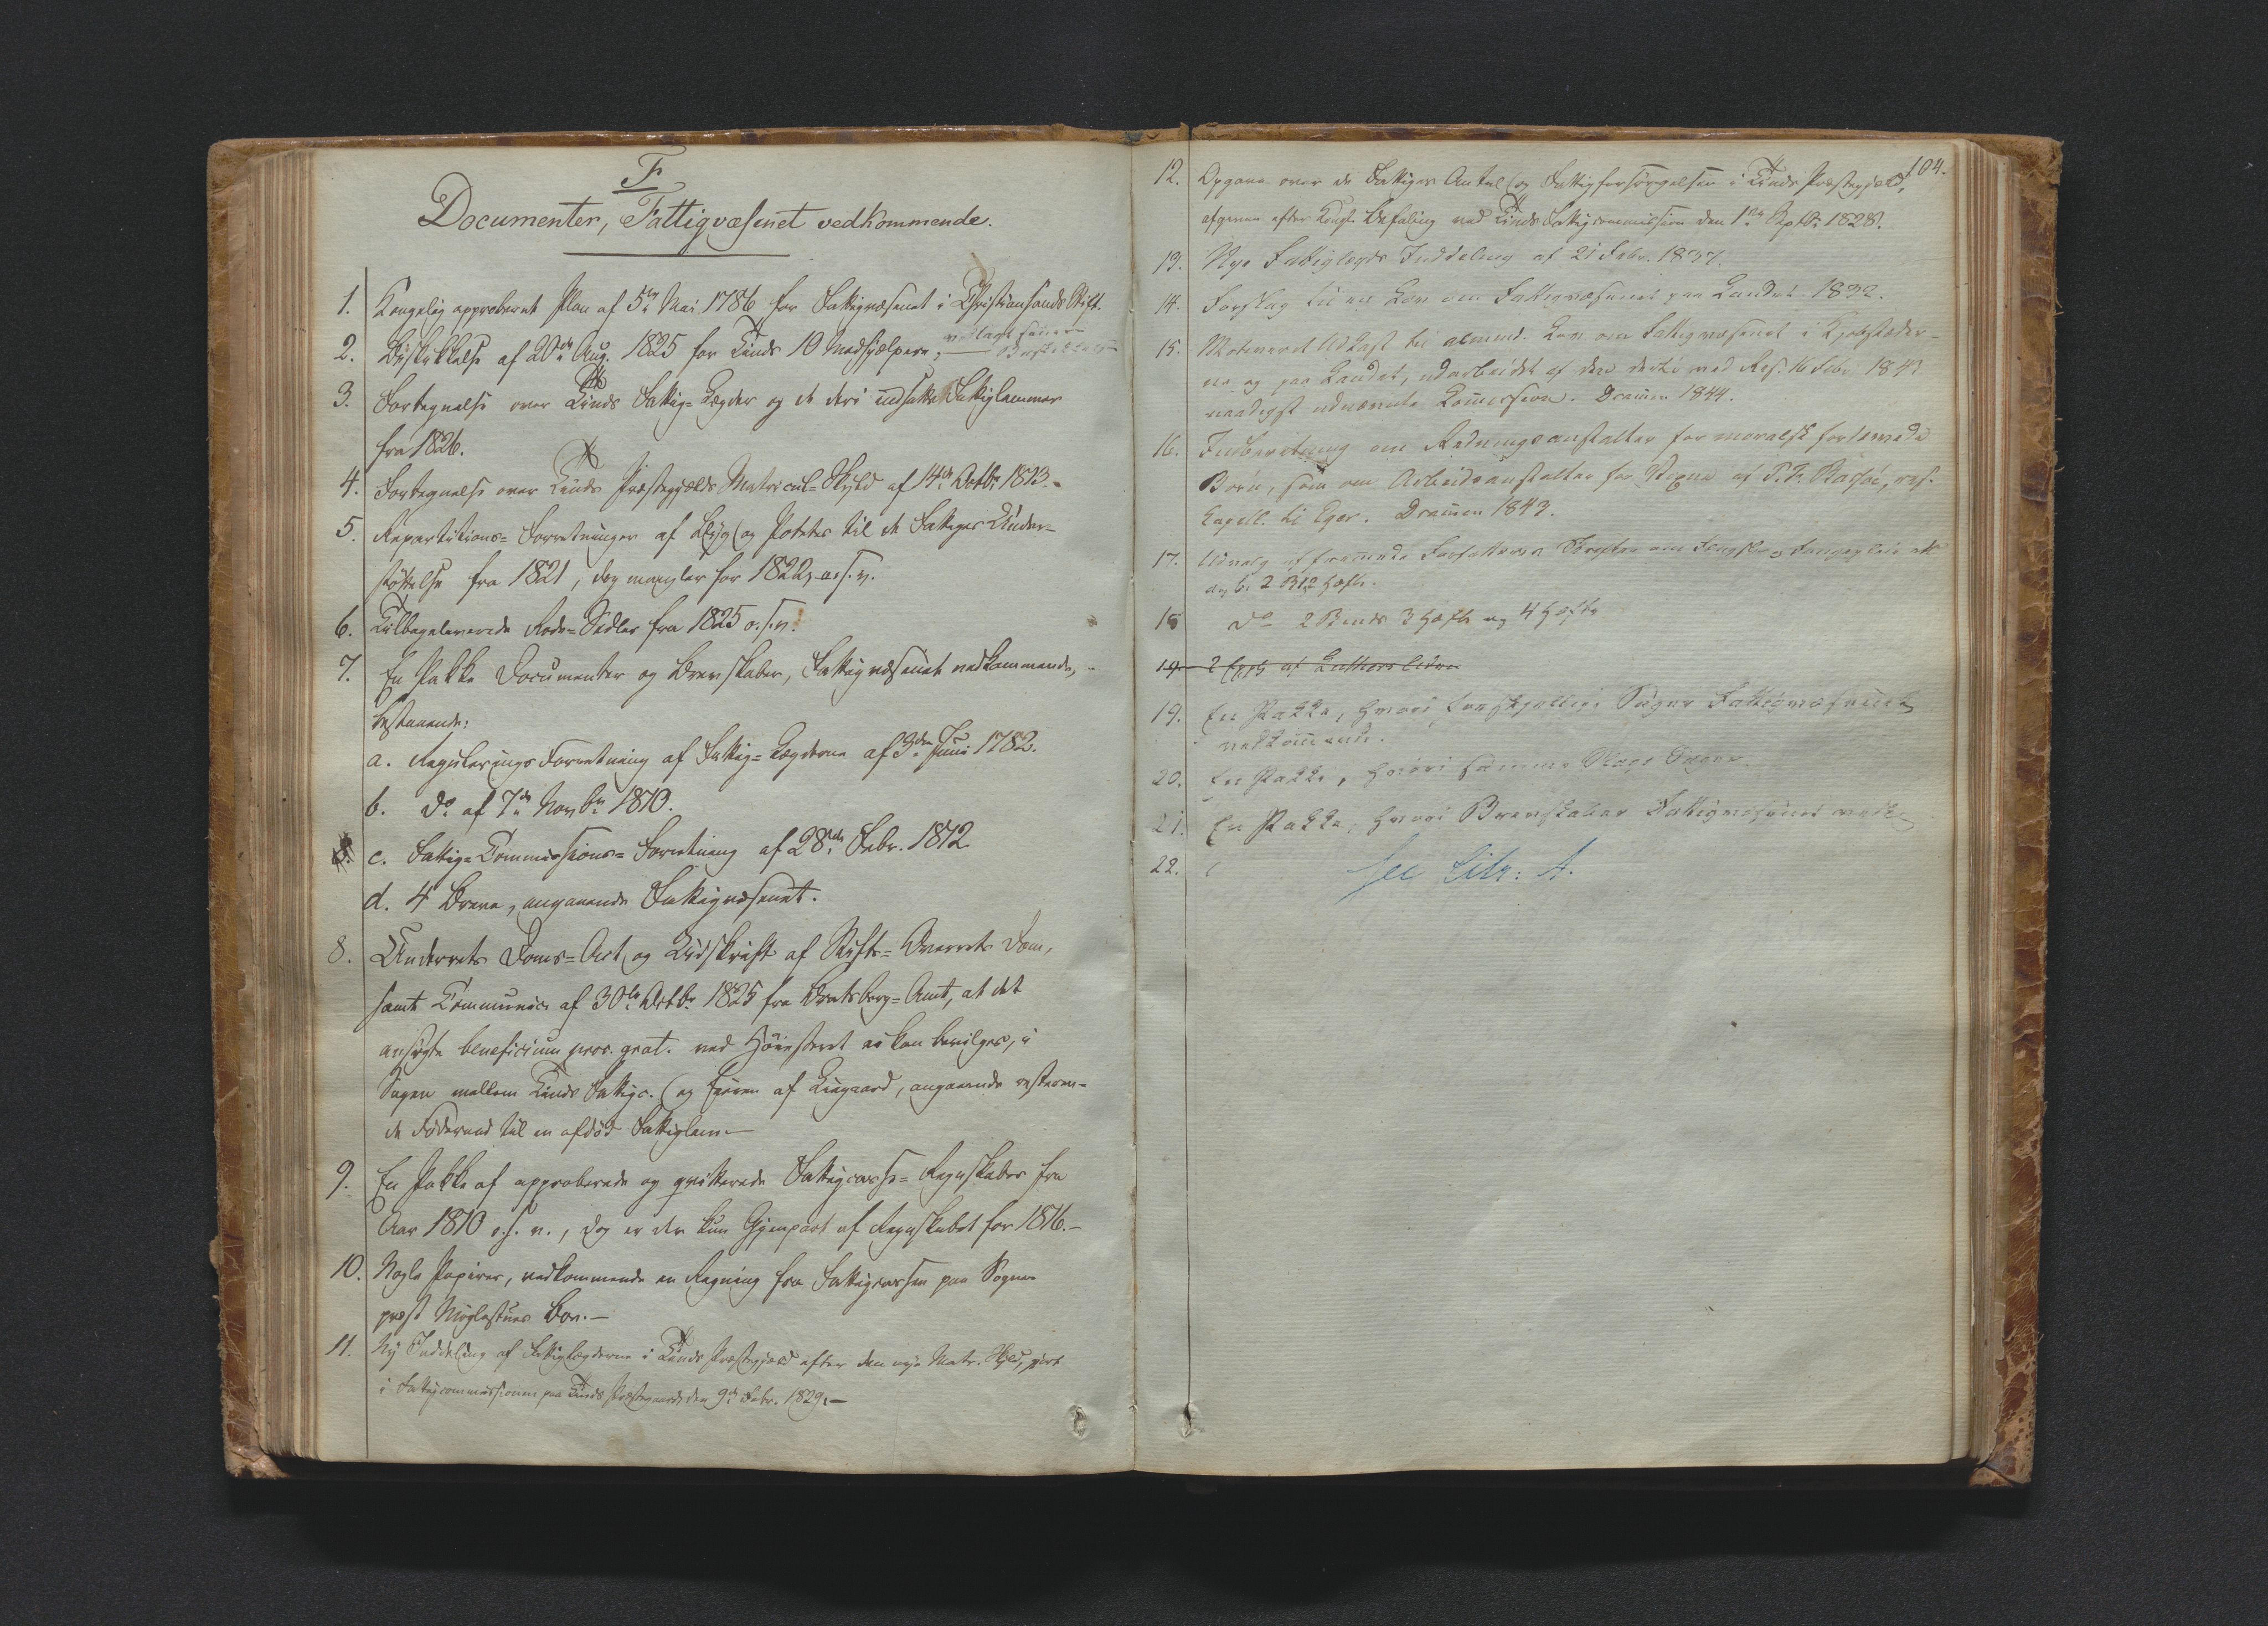 F
Documenter, Fattigvæsenet vedkommende.
1. Kongelig approberet Plan af 5te Mai 1786 for Fattigvæsenet i Christiansands Stift.
2. Beskikkelse af 20de Aug. 1825 for Tinds 10 Medhjælpere; vedlagt senere
Beskikkelser
3. Fortegnelse over Tinds Fattig-Lægder og de deri indsatte Fattiglemmer
fra 1826.
4. Fortegnelse over Tinds Præstegjælds Matricul-Skyld af 14de Octbr. 1823.
5. Repartitions-Forretninger af Byg og Poteter til de Fattiges Under-
støttelse fra 1821, dog mangler for 1822, o. s. v.
6. Tilbageleverede Rode-Sedler fra 1825 o. s. v.
7. En Pakke Documenter og Brevskaber, Fattigvæsenet vedkommende,
bestaaende:
a. Regulerings Forretning af Fattig-Lægderne af 3die Juni 1782.
b. do af 7de Novbr 1810.
8. c. Fattig-Commissions-Forretning af 28de Febr. 1812
d. 4 Breve, angaaende Fattigvæsenet.
8. Underrets Doms-Act og Udskrift af Stifts-Overrets Dom,
samt Communic. af 30te Octbr 1825 fra Bratsberg-Amt, at det
ansøgte beneficium proc. grat. ved Høiesteret ei kan bevilges, i
Sagen mellem Tinds Fattigc. og Eieren af Kirgaard, angaaende resteren-
de Føderaad til en afdød Fattiglem.
9. En Pakke af approberede og qvitterede Fattigcasse-Regnskaber fra
Aar 1810 o. s. v., dog er der kun Gjenpart af Regnskabet for 1816.
10. Nogle Papirer, vedkommende en Regning fra Fattigcassen paa Sogne-
præst Møglestues Boe.
11. Ny Inddeling af Fattiglægderne i Tinds Præstegjeld efter den nye Matr. Skyld, gjort
i Fattigcommissionen paa Tinds Præstegaard den 9de Febr. 1829.
104.
12. Opgave over de Fattiges Antal og Fattigforsørgelsen i Tinds Præstegjæld,
afgiven efter Kongl. Befaling ved Tinds Fattigcommission den 1ste Septbr. 1828.
13. Nye Fattiglægds Inddeling af 21 Febr. 1837.
14. Forslag til en Lov om Fattigvæsenet paa Landet 1832.
15. Motiveret Udkast til almind. Lov om Fattigvæsenet i Kjøbstæder-
ne og paa Landet, udarbeidet af den dertil ved Res. 16 Febr 1843
naadigst udnævnte Commission. Drammen 1844.
16. Indberetning om Redningsanstalter for moralsk fordærvede
Børn, som om Arbeidsanstalter for Voxne af res.
Capell. til Eger. Drammen 1843.
17. Udvalg af fremmede Forfatteres Skrifter om
2 B. 2 Hæfte.
18 do 2 Binds 3 Hæfte og 4 Hæfte
19. 2 Expl af
19. En Pakke, hvori forskjellige Sager Fattigvæsenet
vedkommende.
20. En Pakke, hvori samme Slags Sager.
21. En Pakke, hvori Brevskaber Fattigvæsenet vedk.
22.
See Litr: A.